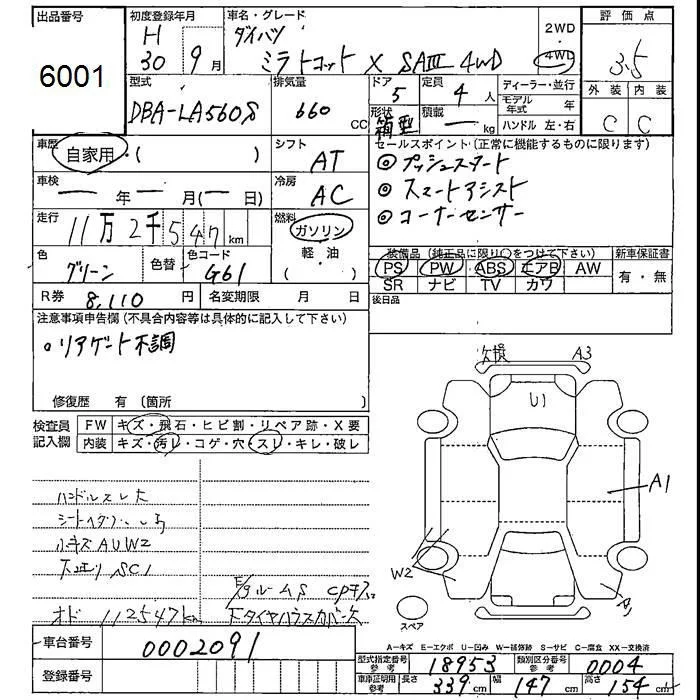 出品番号 初度登録年月 車名・グレード 2WD 評価点
6001 H 30 9月 ダイハツ ミラトコット X SAⅢ 4WD 4WD 3.5
型式 排気量 ドア 定員 ディーラー・並行 外装 内装
DBA-LA560S 660 CC 5 4人 モデル年式 年 C C
形状 箱型 積載 ー kg ハンドル 左・右
車歴 自家用・( ) シフト AT セールスポイント (正常に機能するものに限ります)
◎プッシュスタート
車検 ー年ー月(ー日) 冷房 AC ◎スマートアシスト
◎コーナーセンサー
走行 11万2千547km 燃料 ガソリン 軽・油 ( )
色 グリーン 色替 色コード G61
装備品 (純正品に限り○をつけて下さい) 新車保証書
PS PW ABS エアB AW 有・無
SR ナビ TV カワ
R券 8,110円 名変期限 月 日 後日品
注意事項申告欄 (不具合内容等は具体的に記入して下さい)
○リアゲート不調
修復歴 有 (箇所 )
検査員記入欄 FW キズ・飛石・ヒビ割・リペア跡・X要
内装 キズ・汚レ・コゲ・穴・スレ・キレ・破レ
欠損 A3
U1
A1
W2
スペア
ハンドルスレ大
小キズAUW2
下廻りSC1
E/gルームS
オド 112547km 下タイヤハウスカバー欠
A−キズ E−エクボ U−凹み W−補修跡 S−サビ C−腐食 XX−交換済
車台番号 0002091
型式指定番号 参考 18953 類別区分番号 参考 0004
登録番号
車庫証明用 参考 長さ 339cm 幅 147cm 高さ 154cm